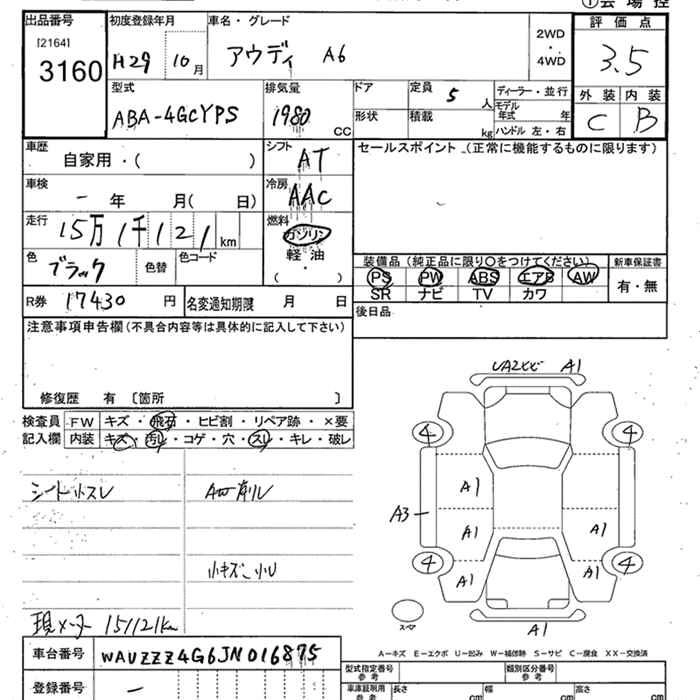 ①会場控
出品番号 初度登録年月 車名・グレード
[2164]
3160
H29 10月
アウディ A6
2WD・4WD
評価点
3.5
外装 内装
C B
型式 排気量 ドア 定員 5人 ディーラー・並行
ABA-4GCYPS 1980 CC
形状 積載 kg モデル年式 年
ハンドル 左・右
車歴 シフト セールスポイント (正常に機能するものに限ります)
自家用・( ) AT
車検 冷房
- 年 月( 日) AAC
走行 燃料
15万1千121km
ガソリン
軽・油
( )
色 色替 色コード
ブラック
装備品 (純正品に限り○をつけてください) 新車保証書
PS PW ABS エアB AW 有・無
SR ナビ TV カワ
R券 17430 円 名変通知期限 月 日
後日品
注意事項申告欄(不具合内容等は具体的に記入して下さい)
修復歴 有 〔箇所 〕
検査員 FW キズ・飛石・ヒビ割・リペア跡・×要
記入欄 内装 キズ・汚レ・コゲ・穴・スレ・キレ・破レ
シート小スレ AW削レ
小キズ小U
現メーター 151121km
UA2ヒビ A1
4 4
A1
A3
A1 A1
4 4
A1 A1
スペア
A1
A－キズ E－エクボ U－凹み W－補修跡 S－サビ C－腐食 XX－交換済
車台番号 WAUZZZ4G6JN016875
登録番号 -
型式指定番号 参考 類別区分番号 参考
車庫証明用 参考 長さ cm 幅 cm 高さ cm